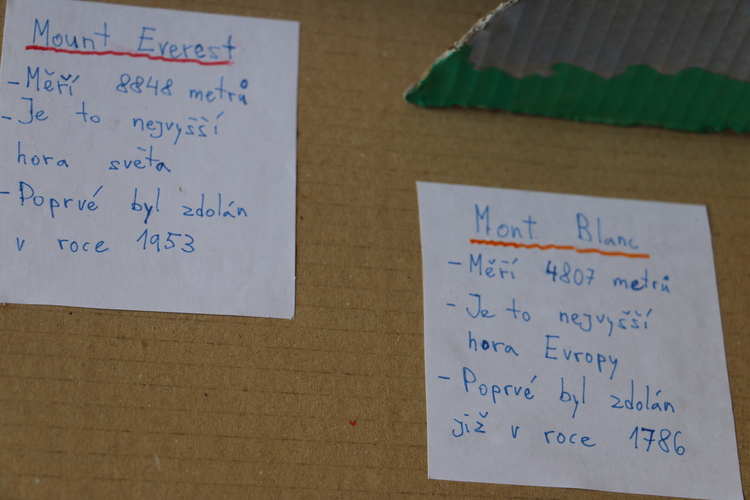 Mount Everest
- Měří 8848 metrů
- Je to nejvyšší
hora světa
- Poprvé byl zdolán
v roce 1953
Mont Blanc
- Měří 4807 metrů
- Je to nejvyšší
hora Evropy
- Poprvé byl zdolán
již v roce 1786